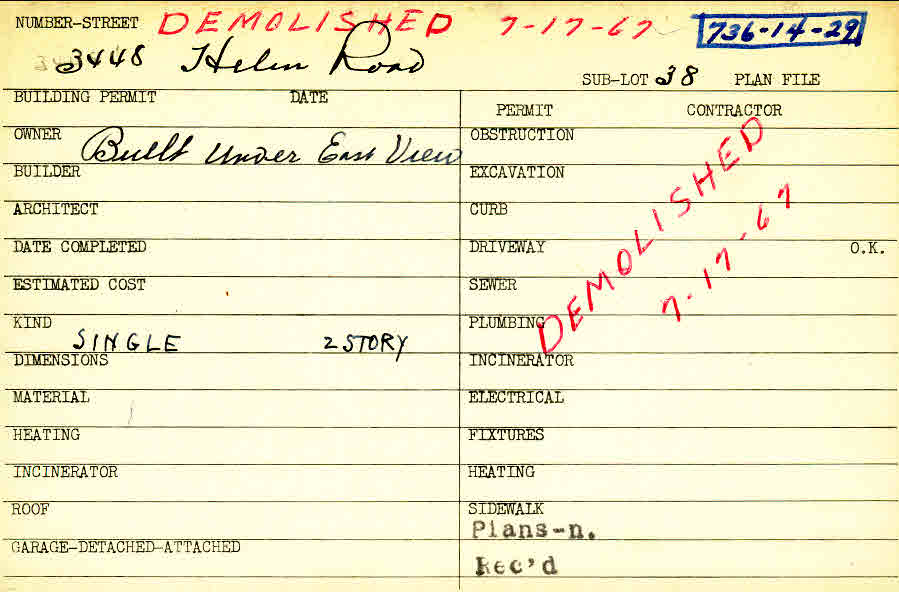 NUMBER-STREET DEMOLISHED 7-17-67 736-14-29
3448 Helen Road
SUB-LOT 38 PLAN FILE
BUILDING PERMIT DATE
PERMIT CONTRACTOR
OWNER Built Under East View
OBSTRUCTION
BUILDER
EXCAVATION
ARCHITECT
CURB
DATE COMPLETED
DRIVEWAY O.K.
ESTIMATED COST
SEWER
KIND
PLUMBING
SINGLE 2 STORY
DEMOLISHED
7-17-67
DIMENSIONS
INCINERATOR
MATERIAL
ELECTRICAL
HEATING
FIXTURES
INCINERATOR
HEATING
ROOF
SIDEWALK
Plans-n.
GARAGE-DETACHED-ATTACHED
Rec'd